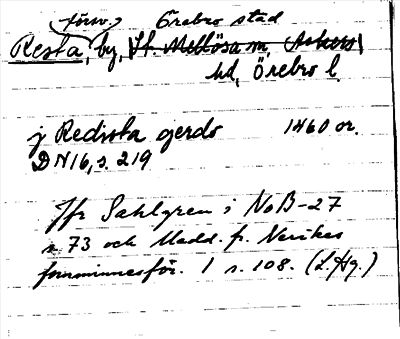 (försv.) Örebro stad
Resta, by, St. Mellösa sn, Askers
hd, Örebro l.
j Redista gerdo 1460 or.
DN 16, s. 219
Jfr Sahlgren i NoB-27
s. 73 och Medd. fr. Nerikes
fornminnesför. 1 s. 108. (L.Hg.)